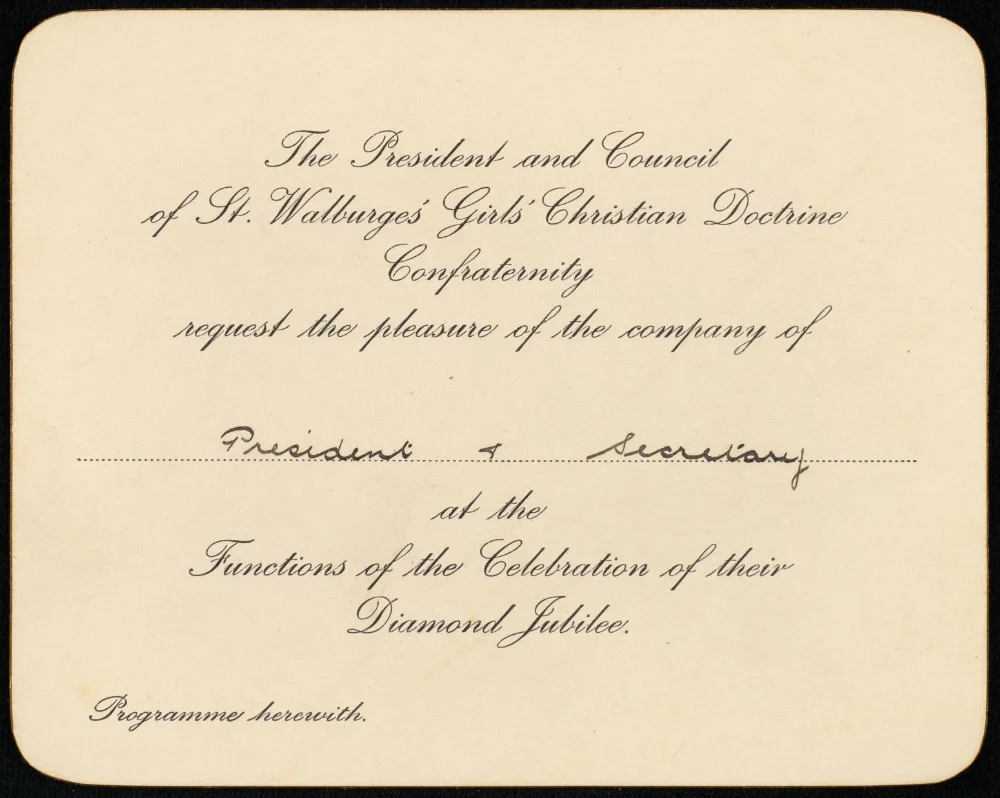 The President and Council
of St. Walburges' Girls' Christian Doctrine
Confraternity
request the pleasure of the company of
President & Secretary
at the
Functions of the Celebration of their
Diamond Jubilee.
Programme herewith.